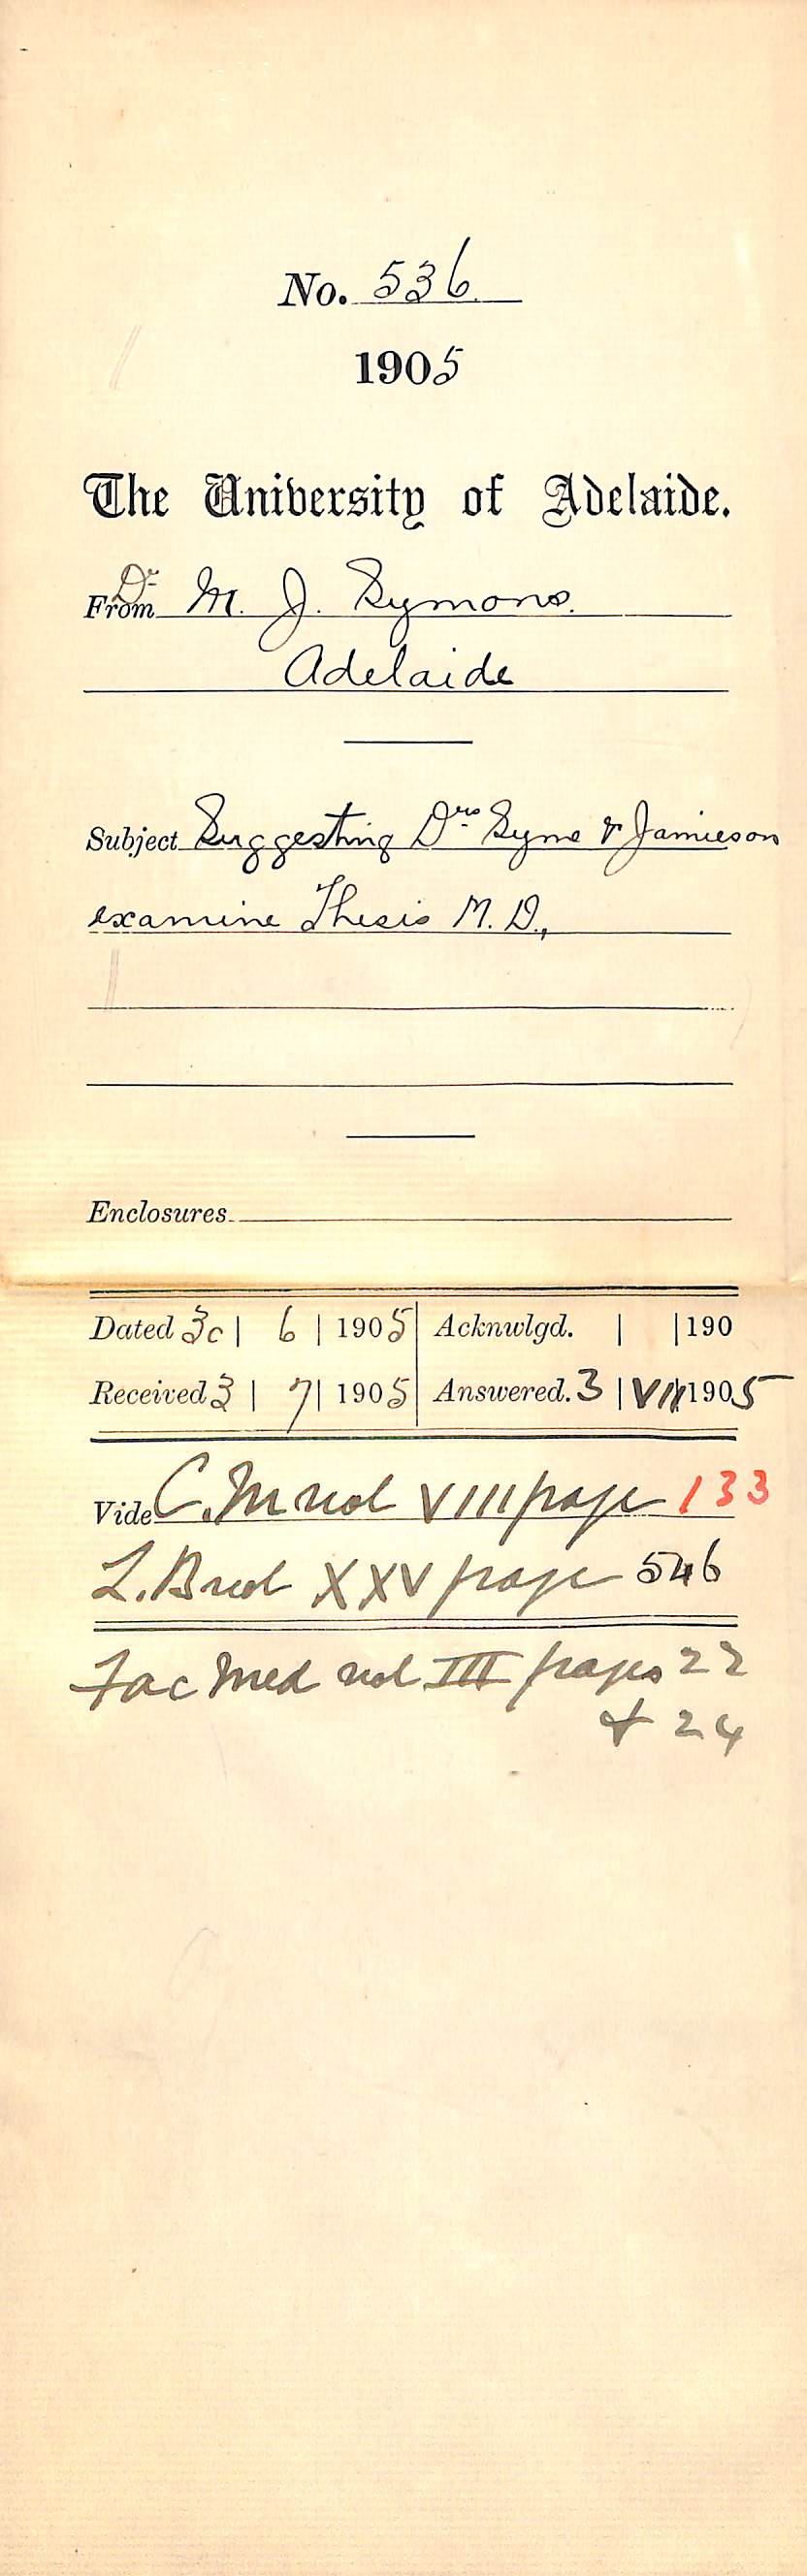 No. 536.
1905
The University of Adelaide.
From Dr. M. J. Symons.
Adelaide
Subject Suggesting Drs. Syme & Jamieson
examine Thesis M. D.,
Enclosures
Dated 30 | 6 | 1905 | Acknwlgd. | | 190
Received 3 | 7 | 1905 | Answered. 3 | VII | 1905
Vide C.M vol VIII page 133
L.B vol XXV page 546
Fac Med vol III pages 22
& 24